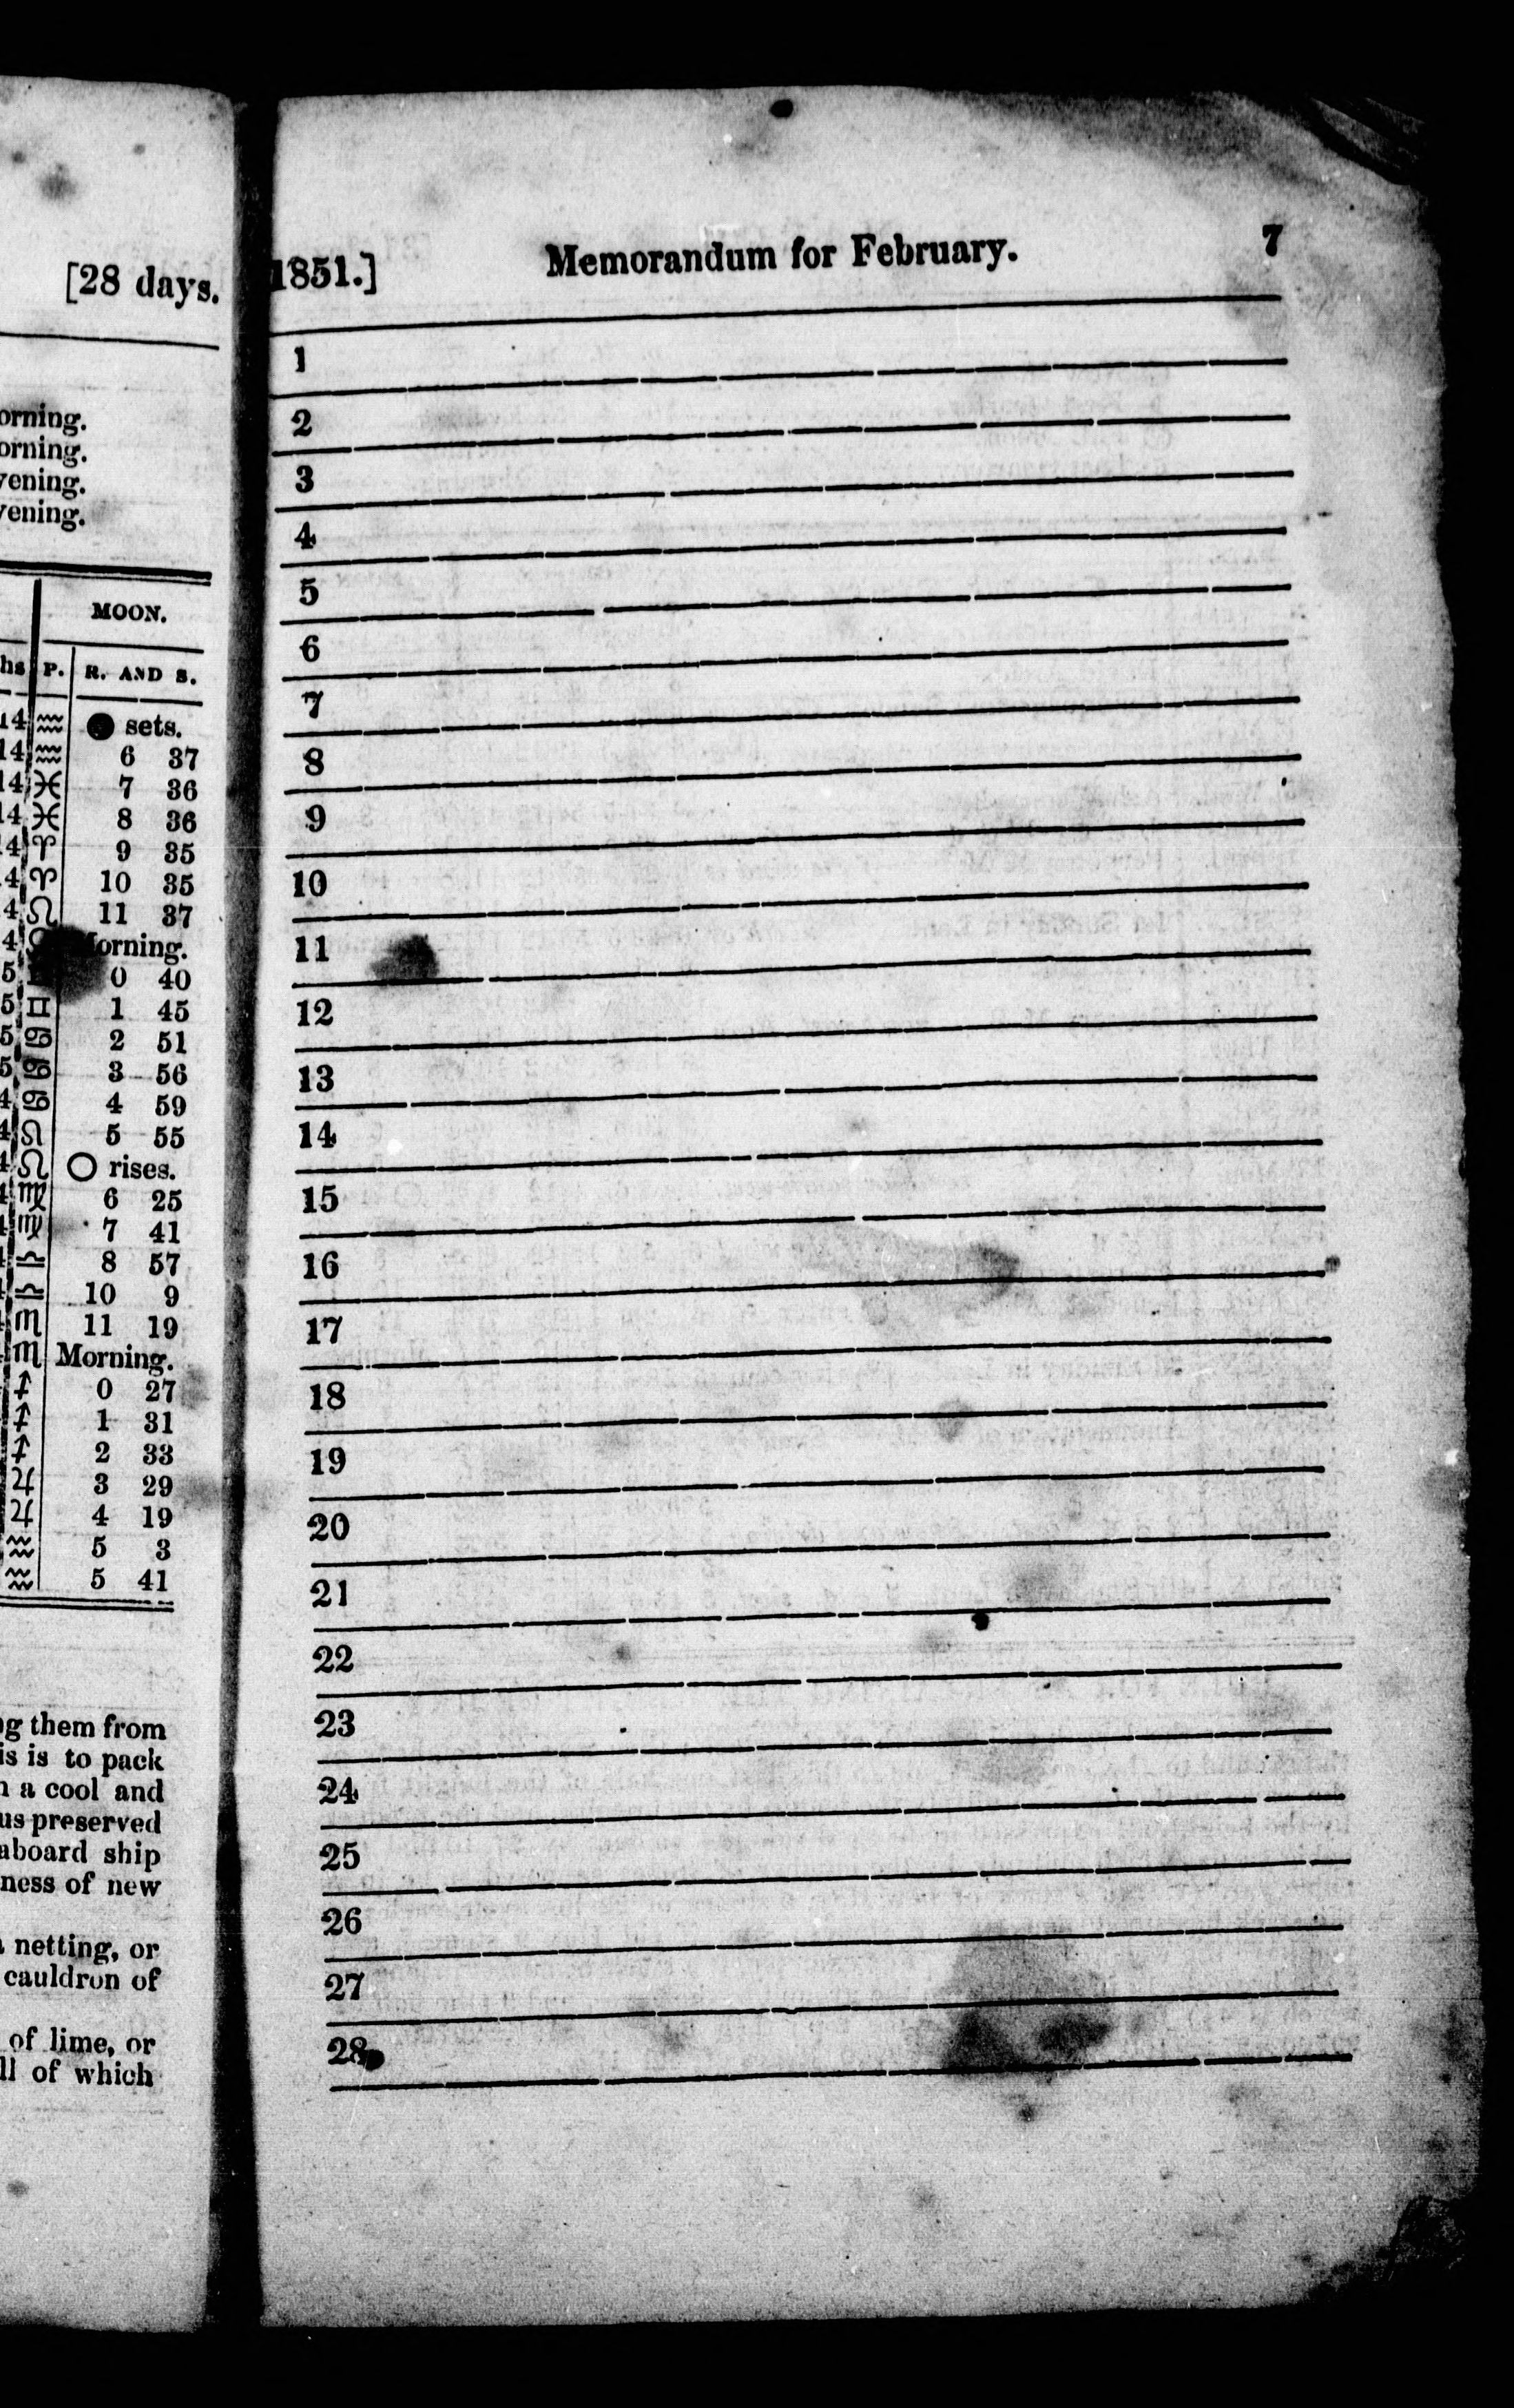 [28 days.
orning.
orning.
vening.
vening.
MOON.
hs P. R. AND S.
14 ♒ ● sets.
14 ♒ 6 37
14 ♓ 7 36
14 ♓ 8 36
4 ♈ 9 35
4 ♈ 10 35
4 ♌ 11 37
4 orning.
5 0 40
5 ♊ 1 45
5 ♋ 2 51
5 ♋ 3 56
4 ♋ 4 59
4 ♌ 5 55
4 ♌ ○ rises.
♍ 6 25
♍ 7 41
♎ 8 57
♎ 10 9
♏ 11 19
♏ Morning.
♐ 0 27
♐ 1 31
♐ 2 33
♃ 3 29
♃ 4 19
♒ 5 3
♒ 5 41
g them from
is is to pack
a cool and
us preserved
aboard ship
ness of new
netting, or
cauldron of
of lime, or
ll of which
1851.] Memorandum for February. 7
1
2
3
4
5
6
7
8
9
10
11
12
13
14
15
16
17
18
19
20
21
22
23
24
25
26
27
28